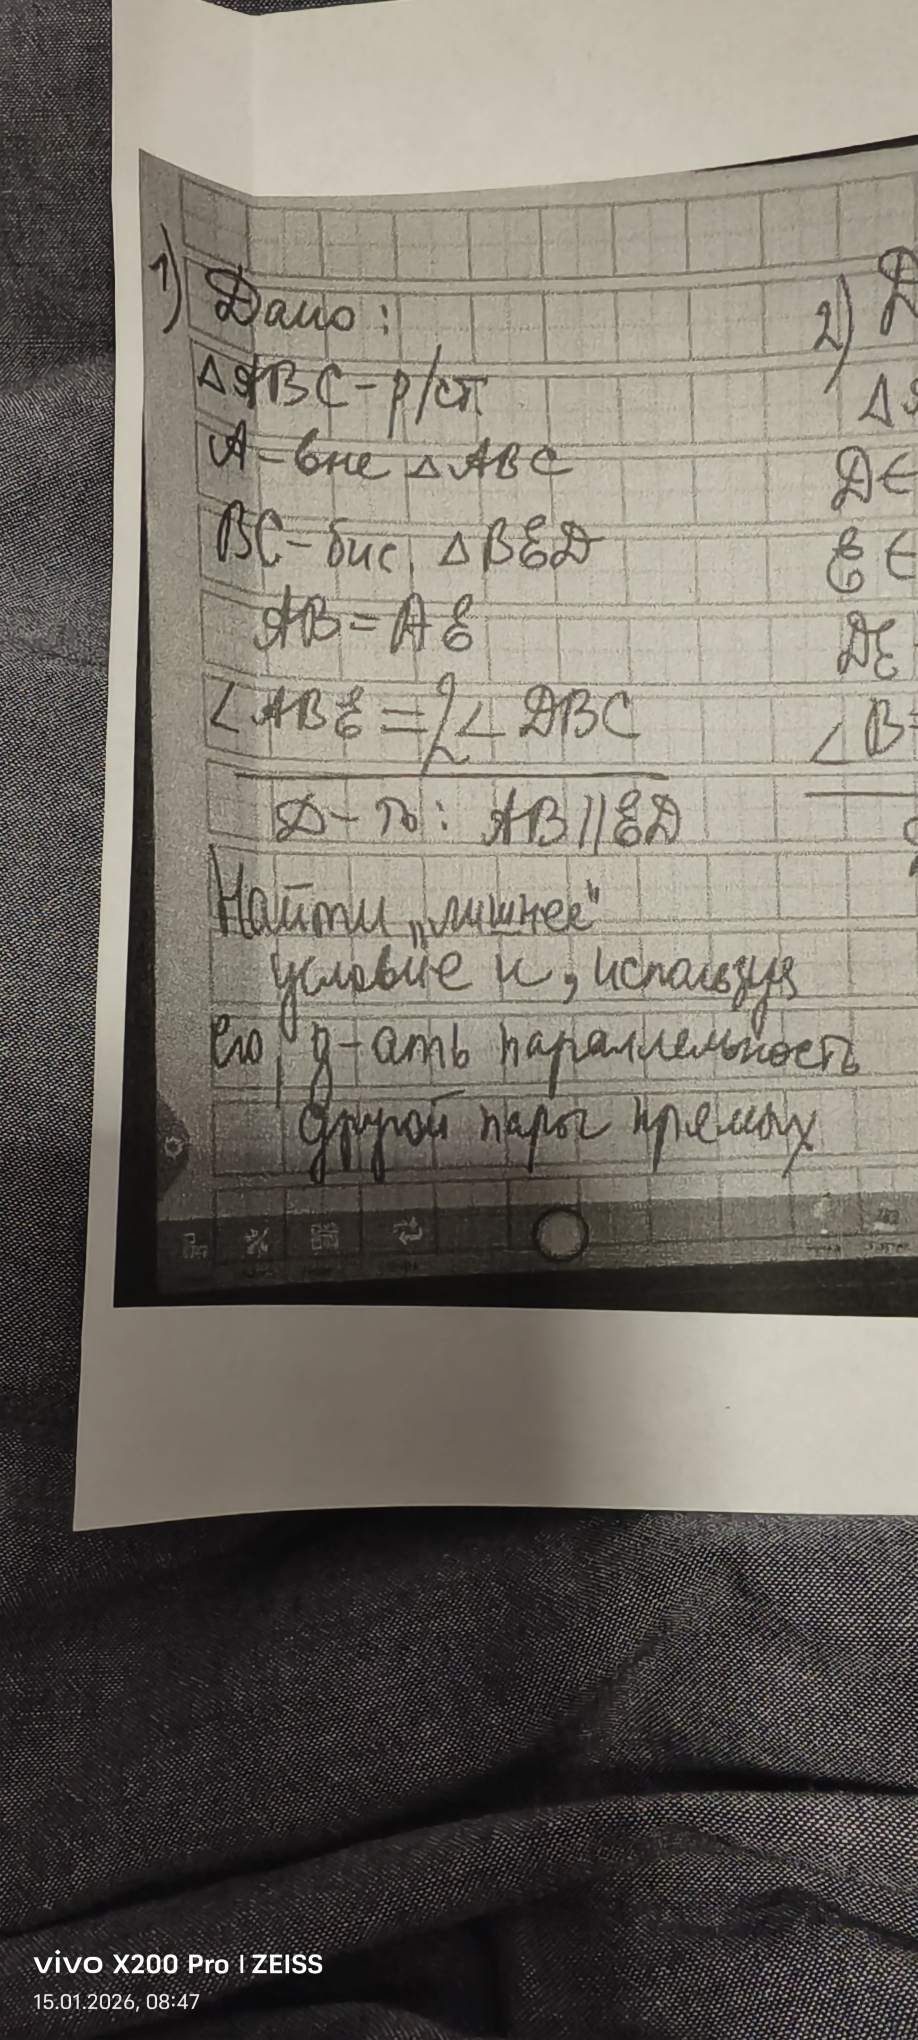 1) Дано:
△ABC - р/ст
A - вне △ABC
BC - бис. △BED
AB = AE
∠ABE = 2∠DBC
Д-ть: AB || ED
Найти „лишнее"
условие и, используя
его, д-ать параллельность
другой пары прямых
2) Д
△
D ∈
E ∈
DE
∠B
vivo X200 Pro | ZEISS
15.01.2026, 08:47